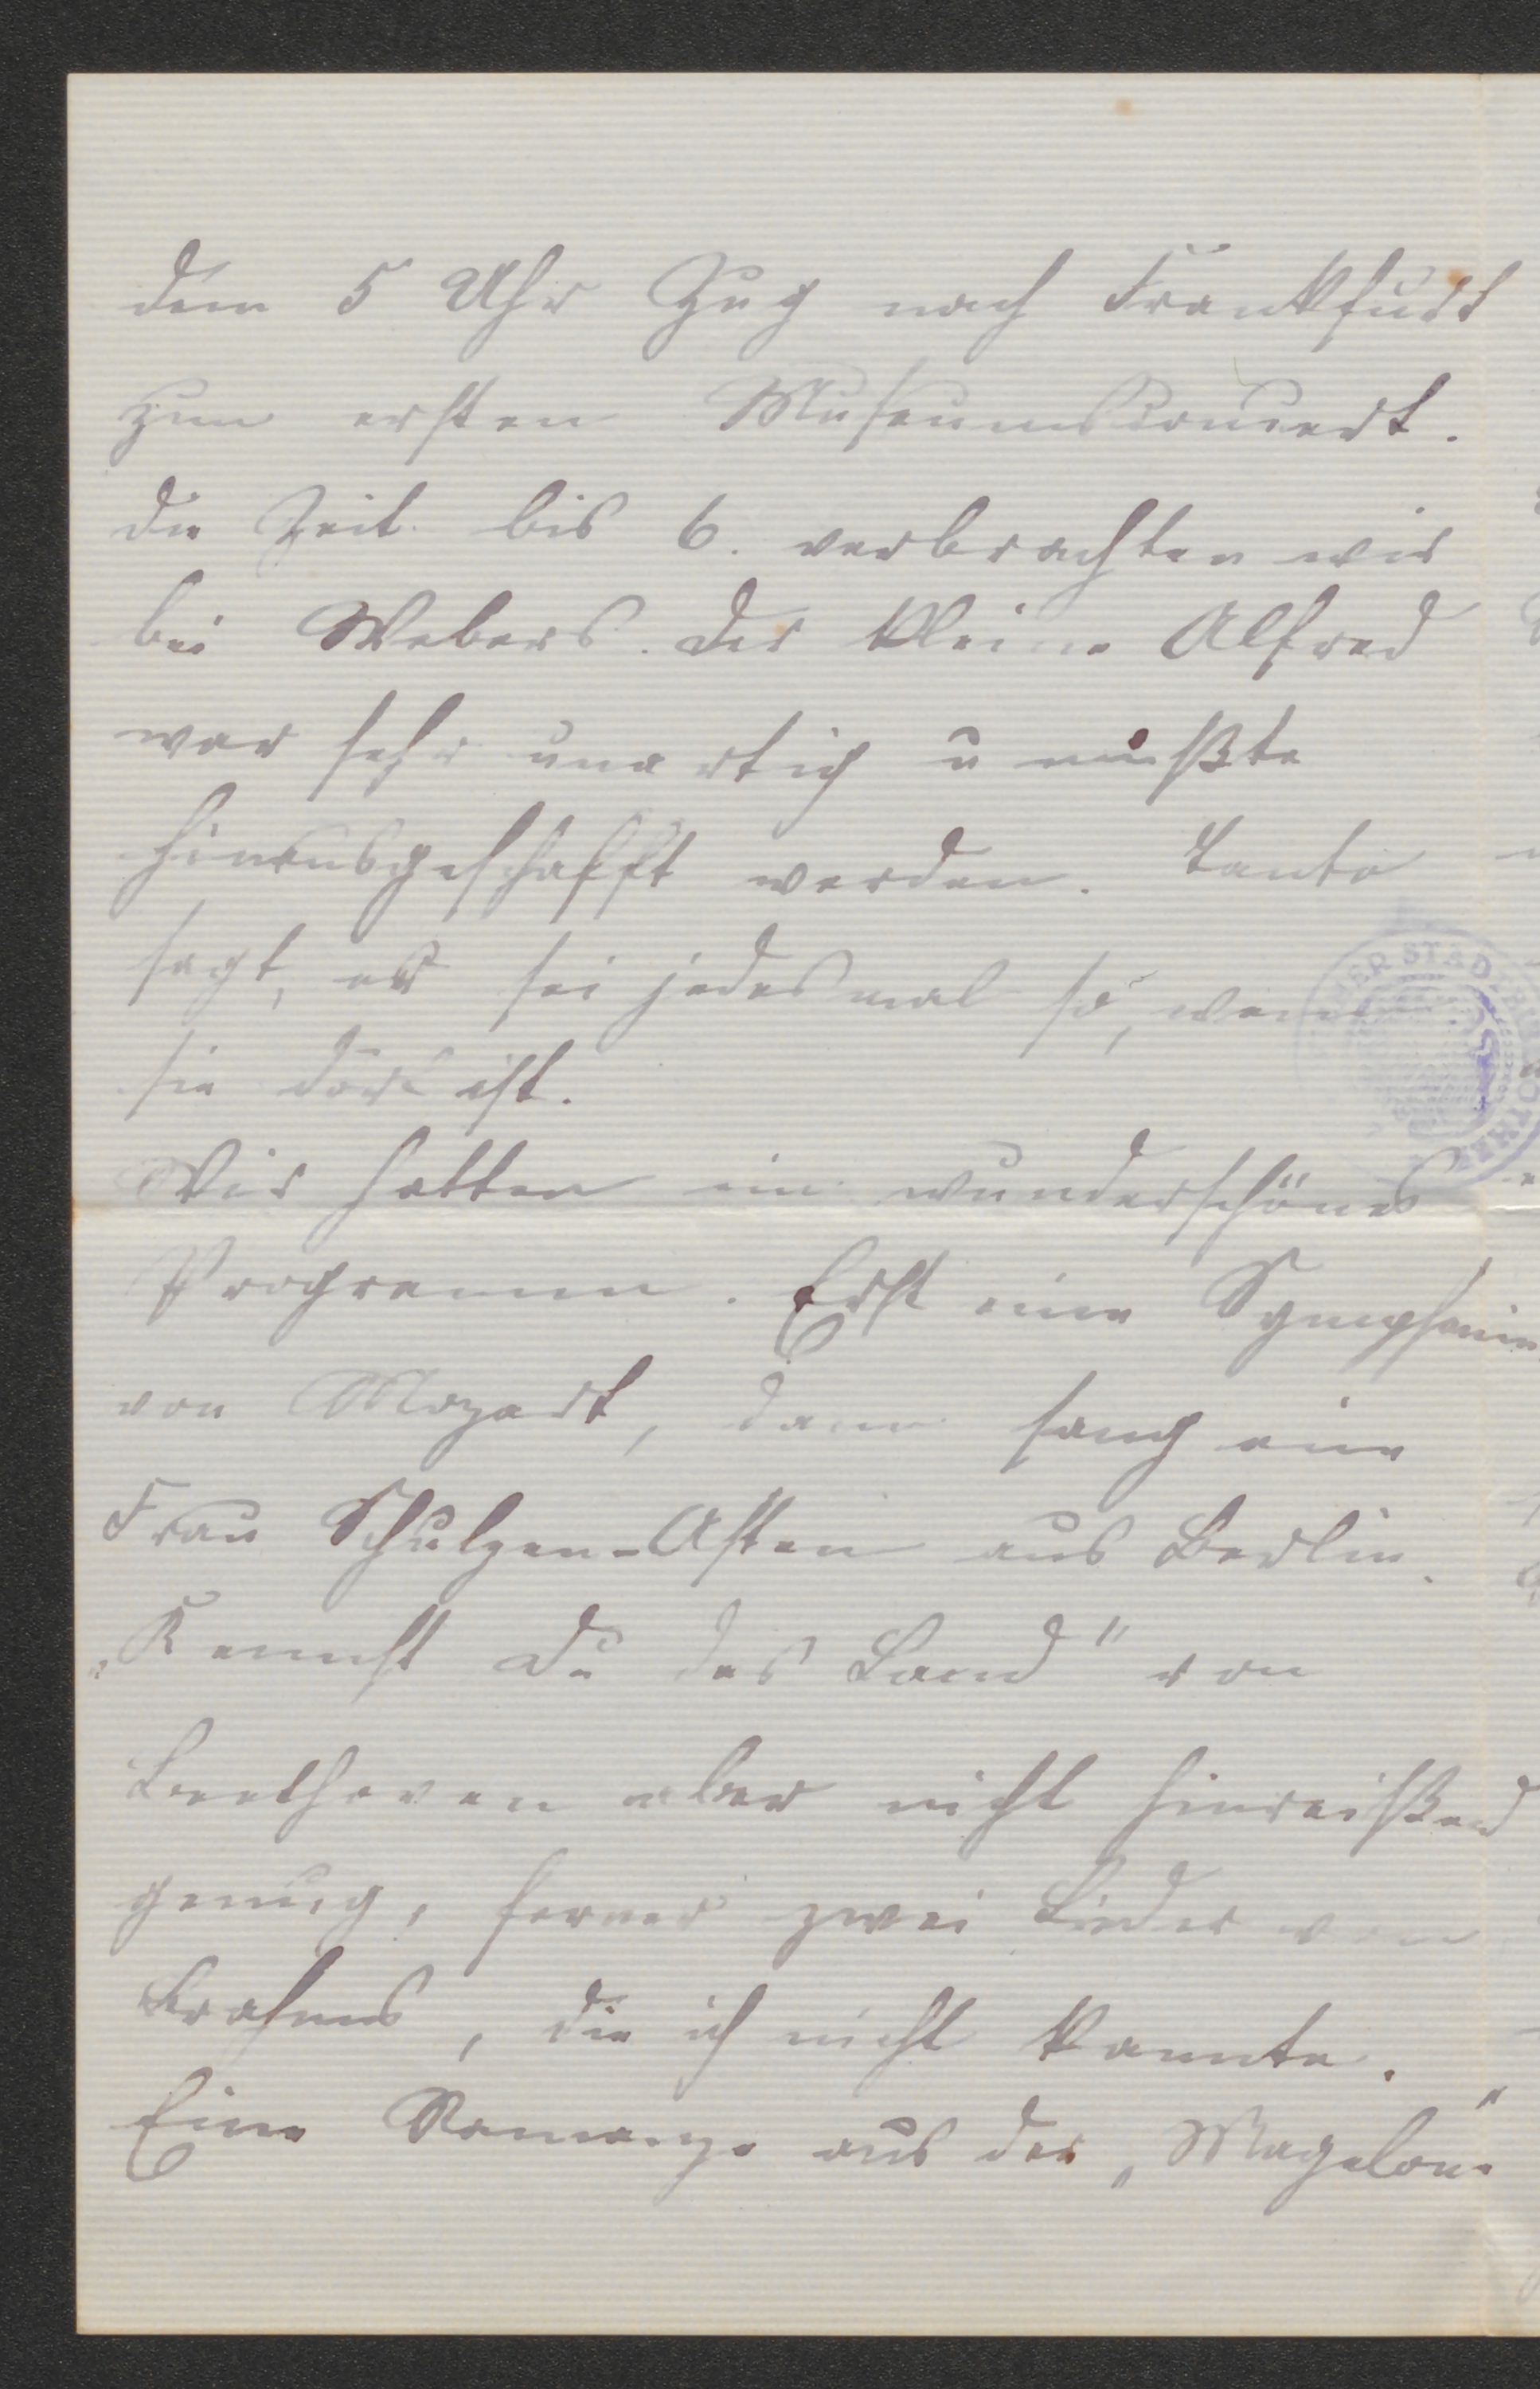 dem 5 Uhr Zug nach Frankfurt
zum ersten Museumsconcert.
die Zeit bis 6. verbrachten wir
bei Webers. Der kleine Alfred
war sehr unartig u mußte
hinausgeschafft werden. Tante
sagt, es sei jedesmal so, wenn
sie dort ist.
Wir hatten ein wunderschönes
Programm. Erst eine Symphonie
von Mozart, dann sang eine
Frau Schulzen-Asten aus Berlin.
„Kennst Du das Land" von
Beethoven aber nicht hinreißend
genug, ferner zwei Lieder von
Brahms, die ich nicht kannte.
Eine Romanze aus der „Magelone"